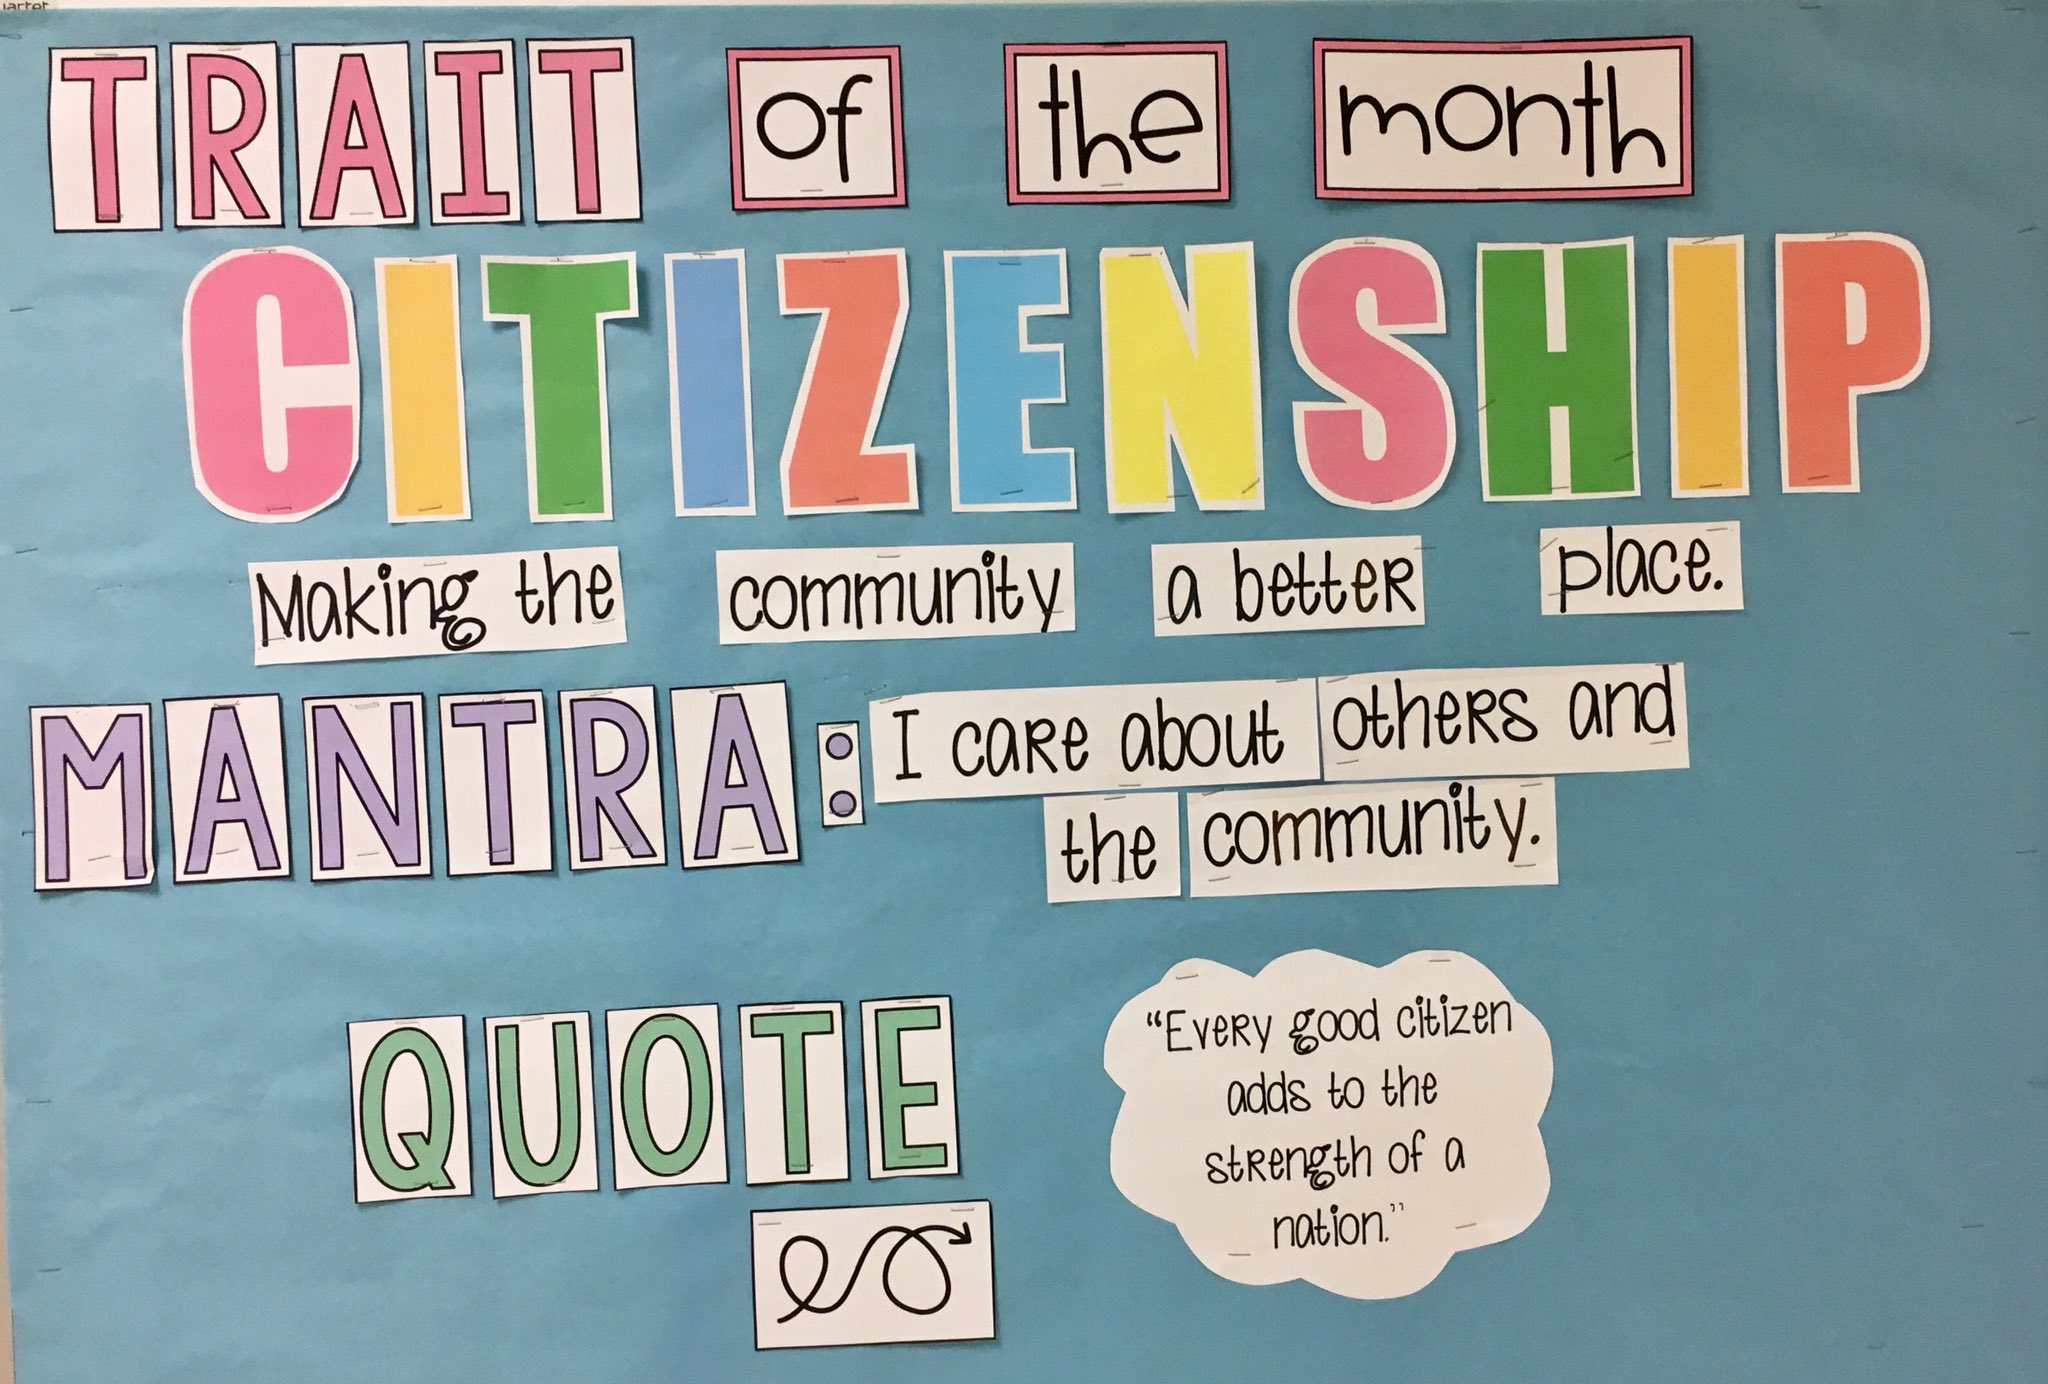 TRAIT of the month
CITIZENSHIP
Making the community a better place.
MANTRA: I care about others and
the community.
QUOTE
“Every good citizen
adds to the
strength of a
nation.”